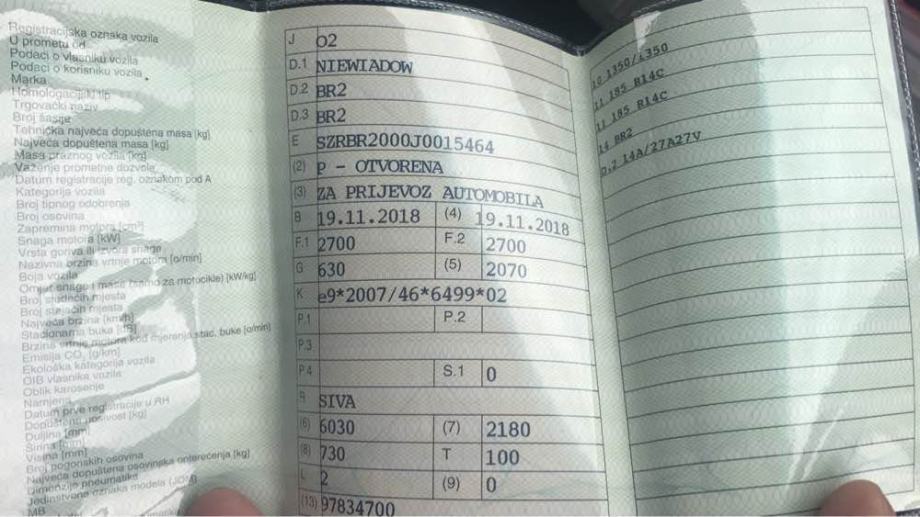 Registracijska oznaka vozila
U prometu od
Podaci o vlasniku vozila
Podaci o korisniku vozila
Marka
Homologacijski tip
Trgovački naziv
Broj šasije
Tehnička najveća dopuštena masa [kg]
Najveća dopuštena masa [kg]
Masa praznog vozila [kg]
Važenje prometne dozvole
Datum registracije reg. oznakom pod A
Kategorija vozila
Broj tipnog odobrenja
Broj osovina
Zapremina motora [cm³]
Snaga motora [kW]
Vrsta goriva ili izvora snage
Nazivna brzina vrtnje motora [o/min]
Boja vozila
Omjer snage i mase (samo za motocikle) [kW/kg]
Broj sjedećih mjesta
Broj stajaćih mjesta
Najveća brzina [km/h]
Stacionarna buka [dB]
Brzina vrtnje motora kod mjerenja stac. buke [o/min]
Emisija CO₂ [g/km]
Ekološka kategorija vozila
OIB vlasnika vozila
Oblik karoserije
Namjena
Datum prve registracije u RH
Dopuštena nosivost [kg]
Duljina [mm]
Širina [mm]
Visina [mm]
Broj pogonskih osovina
Najveća dopuštena osovinska opterećenja [kg]
Dimenzije pneumatika
Jedinstvena oznaka modela (JOM)
MB
J O2
D.1 NIEWIADOW
D.2 BR2
D.3 BR2
E SZRBR2000J0015464
(2) P - OTVORENA
(3) ZA PRIJEVOZ AUTOMOBILA
B 19.11.2018 (4) 19.11.2018
F.1 2700 F.2 2700
G 630 (5) 2070
K e9*2007/46*6499*02
P.1 P.2
P.3
P.4 S.1 0
R SIVA
(6) 6030 (7) 2180
(8) 730 T 100
L 2 (9) 0
(13) 97834700
10 1350/1350
11 185 R14C
11 185 R14C
14 BR2
D.2 14A/27A27V